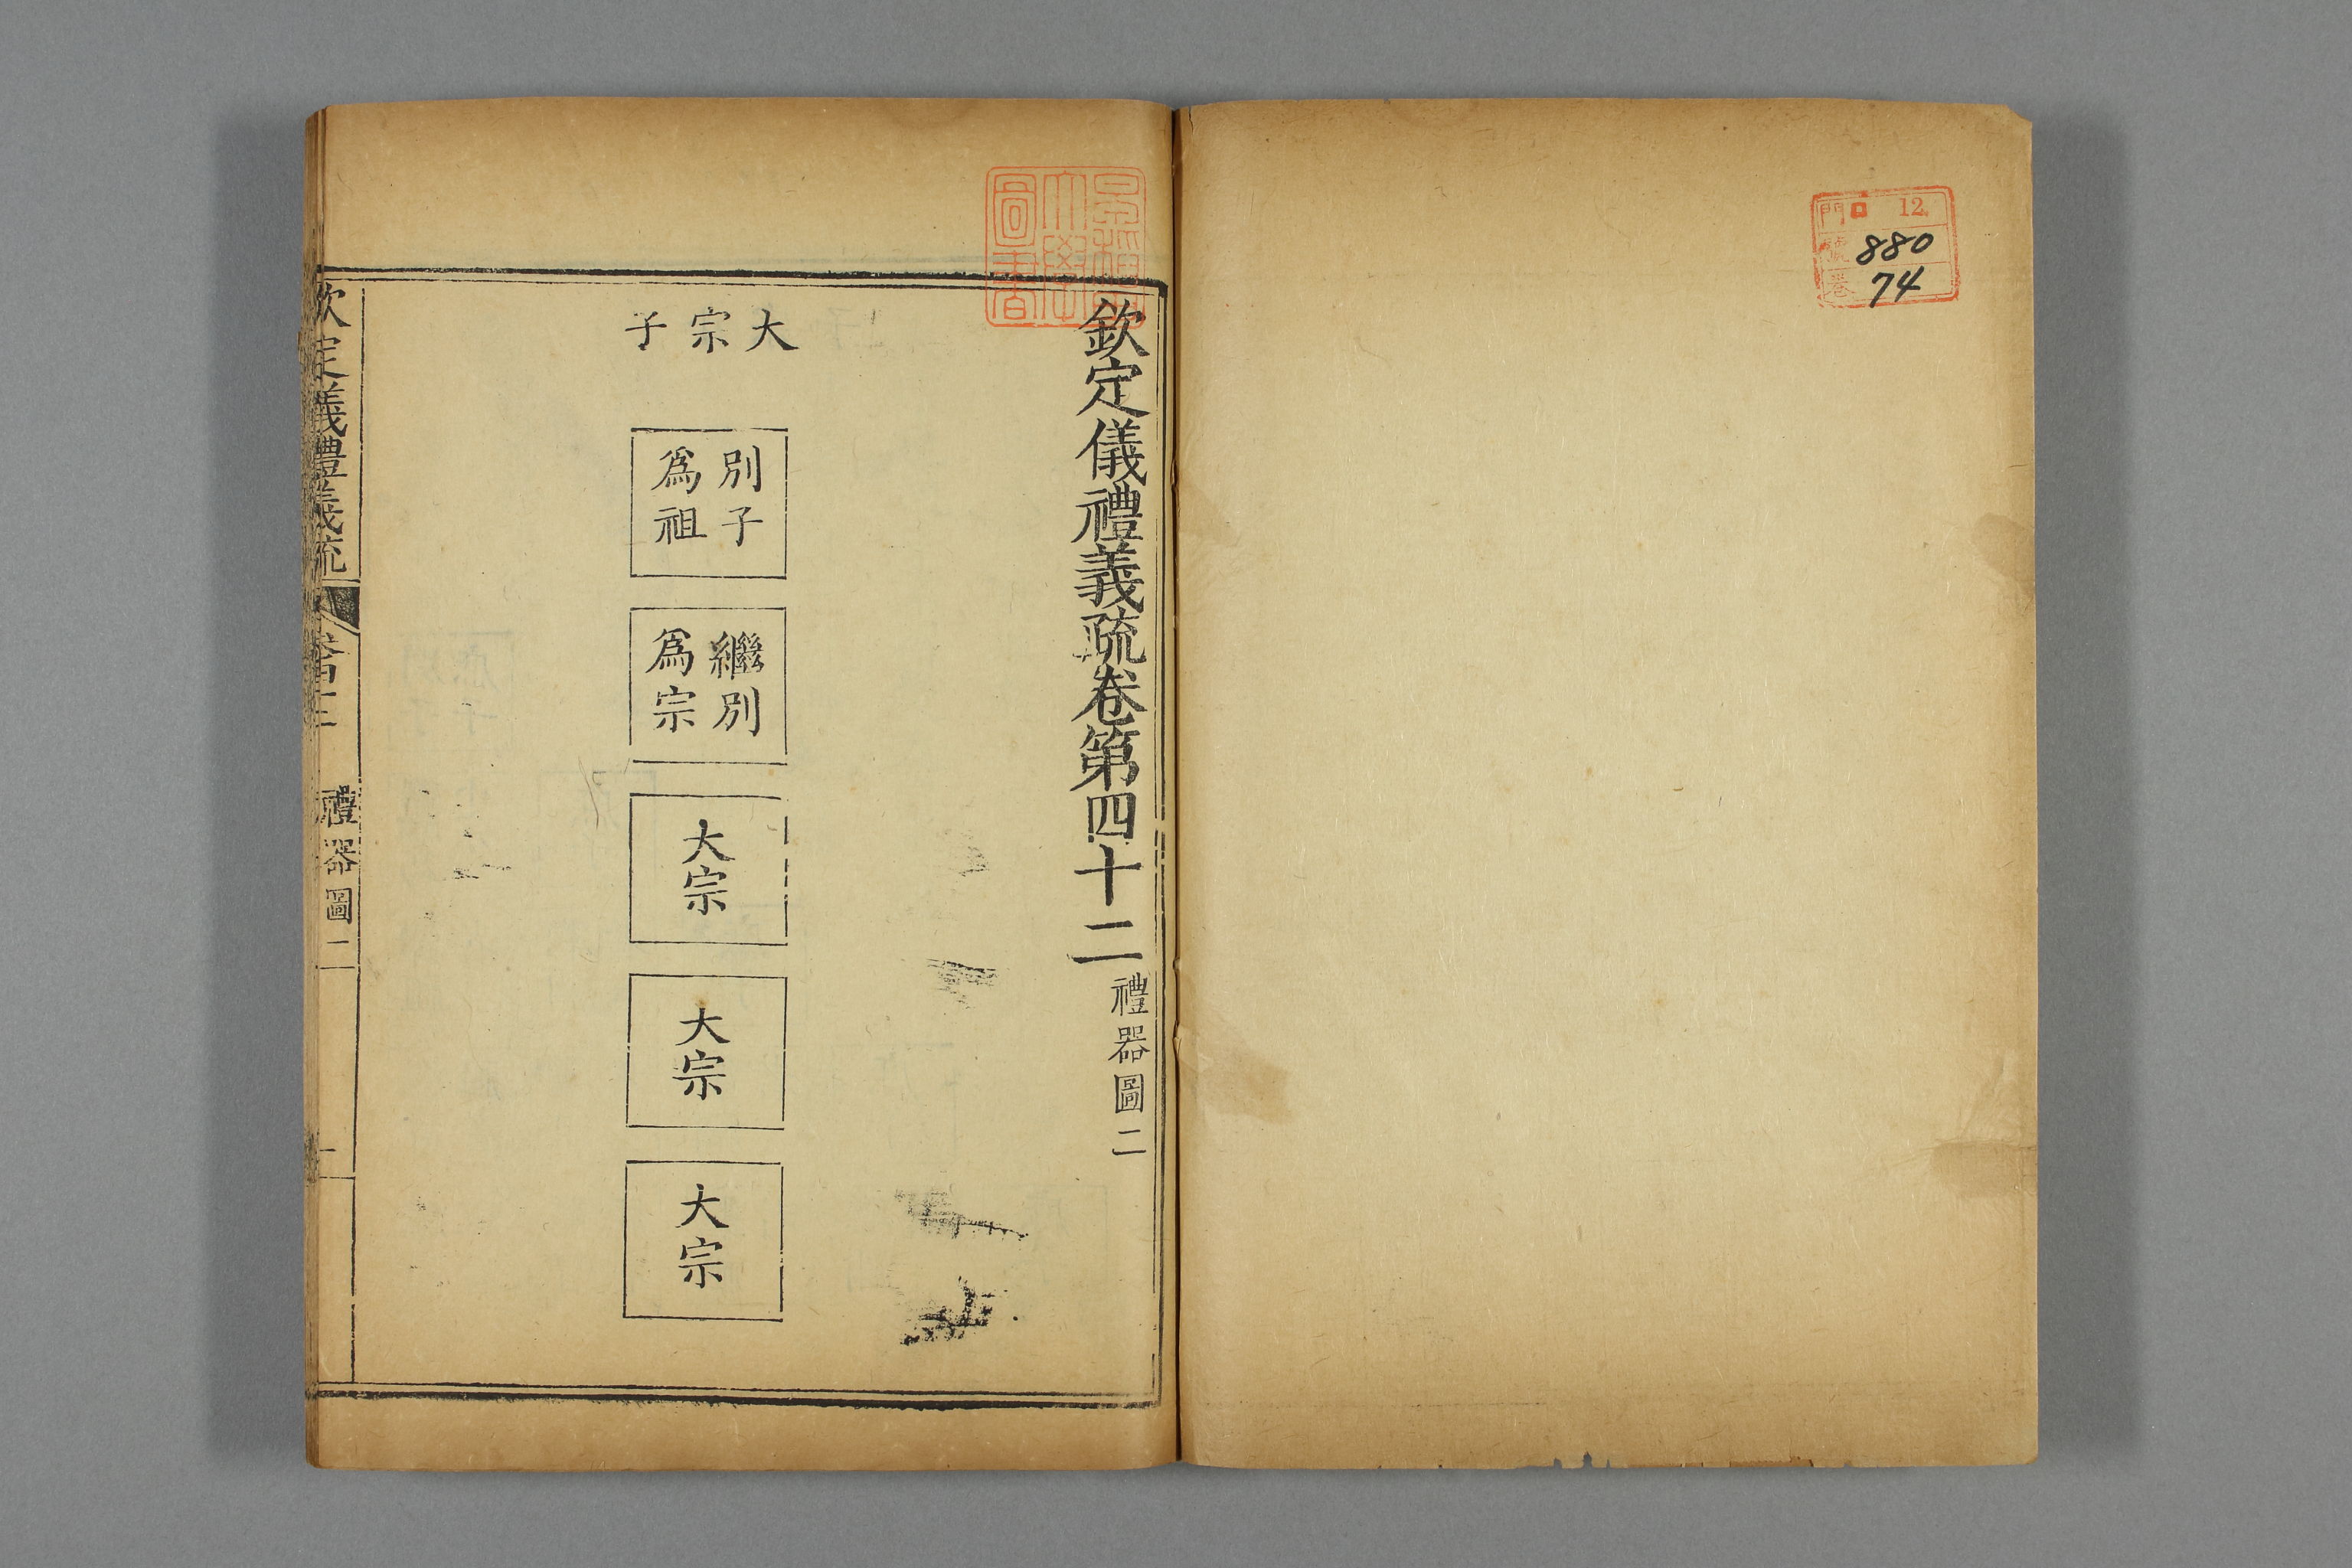 門 口 12
號 880
卷 74
早稲田大學圖書
欽定儀禮義疏卷第四十二 禮器圖二
大宗子
別子
爲祖
繼別
爲宗
大宗
大宗
大宗
欽定儀禮義疏 卷四十二 禮器圖二 一